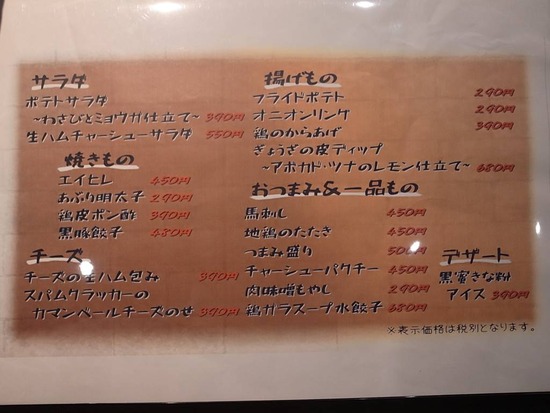 サラダ
ポテトサラダ
~わさびとミョウガ仕立て~ 390円
生ハムチャーシューサラダ 550円
焼きもの
エイヒレ 450円
あぶり明太子 290円
鶏皮ポン酢 390円
黒豚餃子 480円
チーズ
チーズの生ハム包み 390円
スパムクラッカーの
カマンベールチーズのせ 390円
揚げもの
フライドポテト 290円
オニオンリング 290円
鶏のからあげ 390円
ぎょうざの皮ディップ
~アボカド・ツナのレモン仕立て~ 680円
おつまみ&一品もの
馬刺し 450円
地鶏のたたき 450円
つまみ盛り 500円
チャーシューパクチー 450円
肉味噌もやし 290円
鶏ガラスープ水餃子 680円
デザート
黒蜜きな粉
アイス 390円
※表示価格は税別となります。